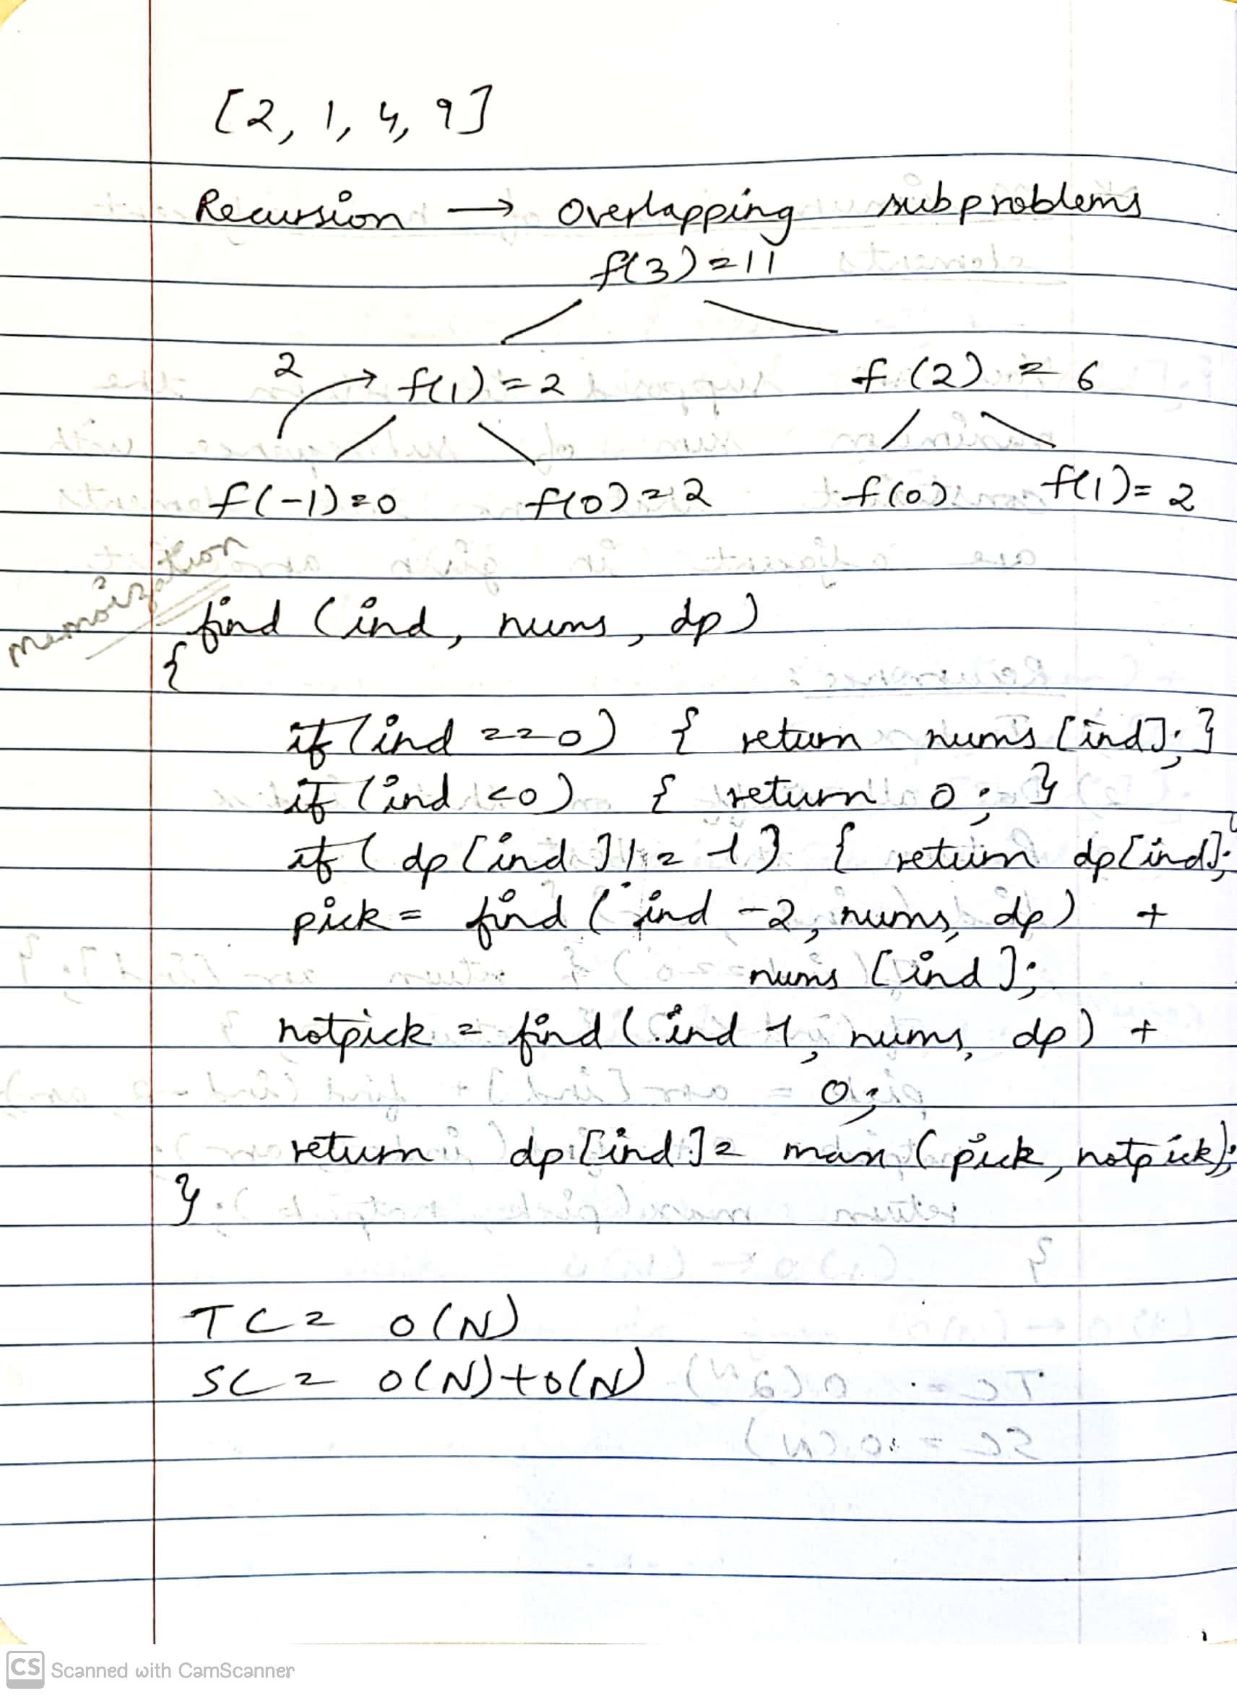 [2, 1, 4, 9]
Recursion → Overlapping subproblems
f(3) = 11
2 → f(1) = 2 f(2) = 6
f(-1) = 0 f(0) = 2 f(0) f(1) = 2
memoization
find (ind, nums, dp)
{
if (ind == 0) { return nums [ind]; }
if (ind < 0) { return 0; }
if ( dp [ind] != -1) { return dp[ind]; }
pick = find ( ind - 2, nums, dp) +
nums [ind];
notpick = find (ind -1, nums, dp) +
0;
return dp [ind] = max (pick, notpick);
}
TC = O(N)
SC = O(N) + O(N)
CS Scanned with CamScanner